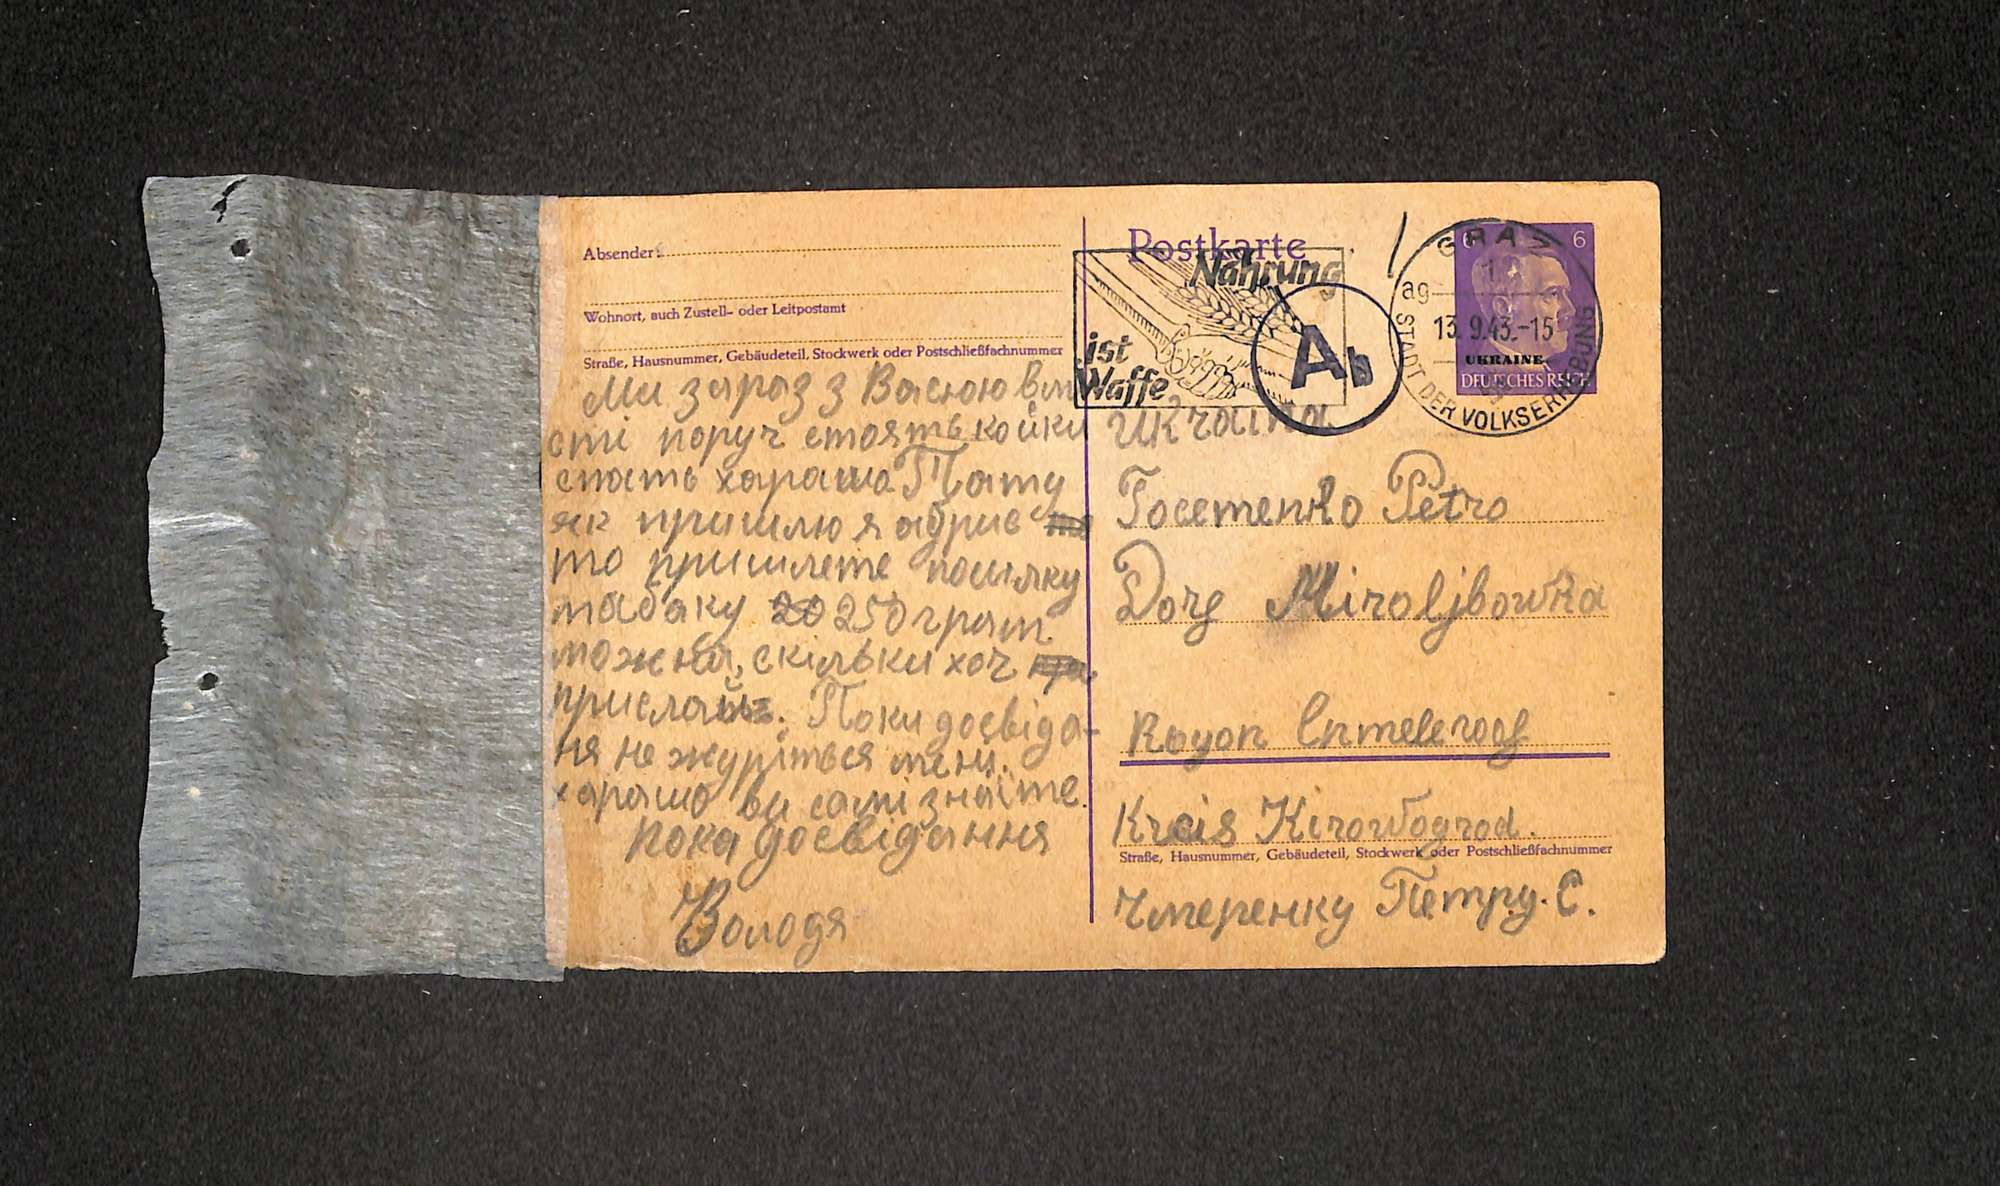 Absender:
Wohnort, auch Zustell- oder Leitpostamt
Straße, Hausnummer, Gebäudeteil, Stockwerk oder Postschließfachnummer
Ми зараз з Васюю вмі
сті поруч стоять койки
спать хараша Тату
як пришлю я абрив
то пришлете посилку
табаку 250 грам
можна, скільки хоч
прислать. Поки досвіда-
ня не журіться мені.
харашо ви самі знаїте.
пока досвідання
Володя
Postkarte
Nahrung
ist
Waffe
Ab
GRAZ
ag
13.9.43.-15
STADT DER VOLKSERHEBUNG
6 6
UKRAINE
DEUTSCHES REICH
Ukraina
Petro
Dorf Miroljbowka
Rayon
Kreis Kirowograd.
Straße, Hausnummer, Gebäudeteil, Stockwerk oder Postschließfachnummer
Чмеренку Петру. С.